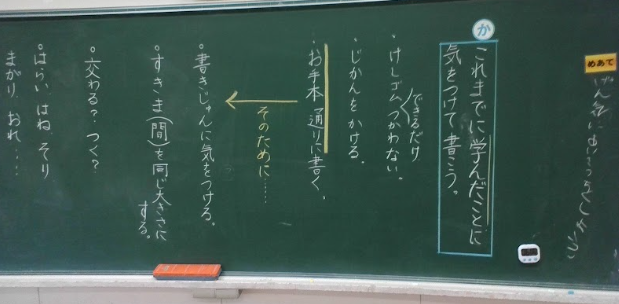 めあて
か
これまでに学んだことに
気をつけて書こう。
・けしゴムつかわない。
できるだけ
・じかんをかける。
・お手本通りに書く。
そのために……
・書きじゅんに気をつける。
・すきま(間)を同じ大きさに
する。
・交わる?つく?
・はらい はね そり
まがり おれ……